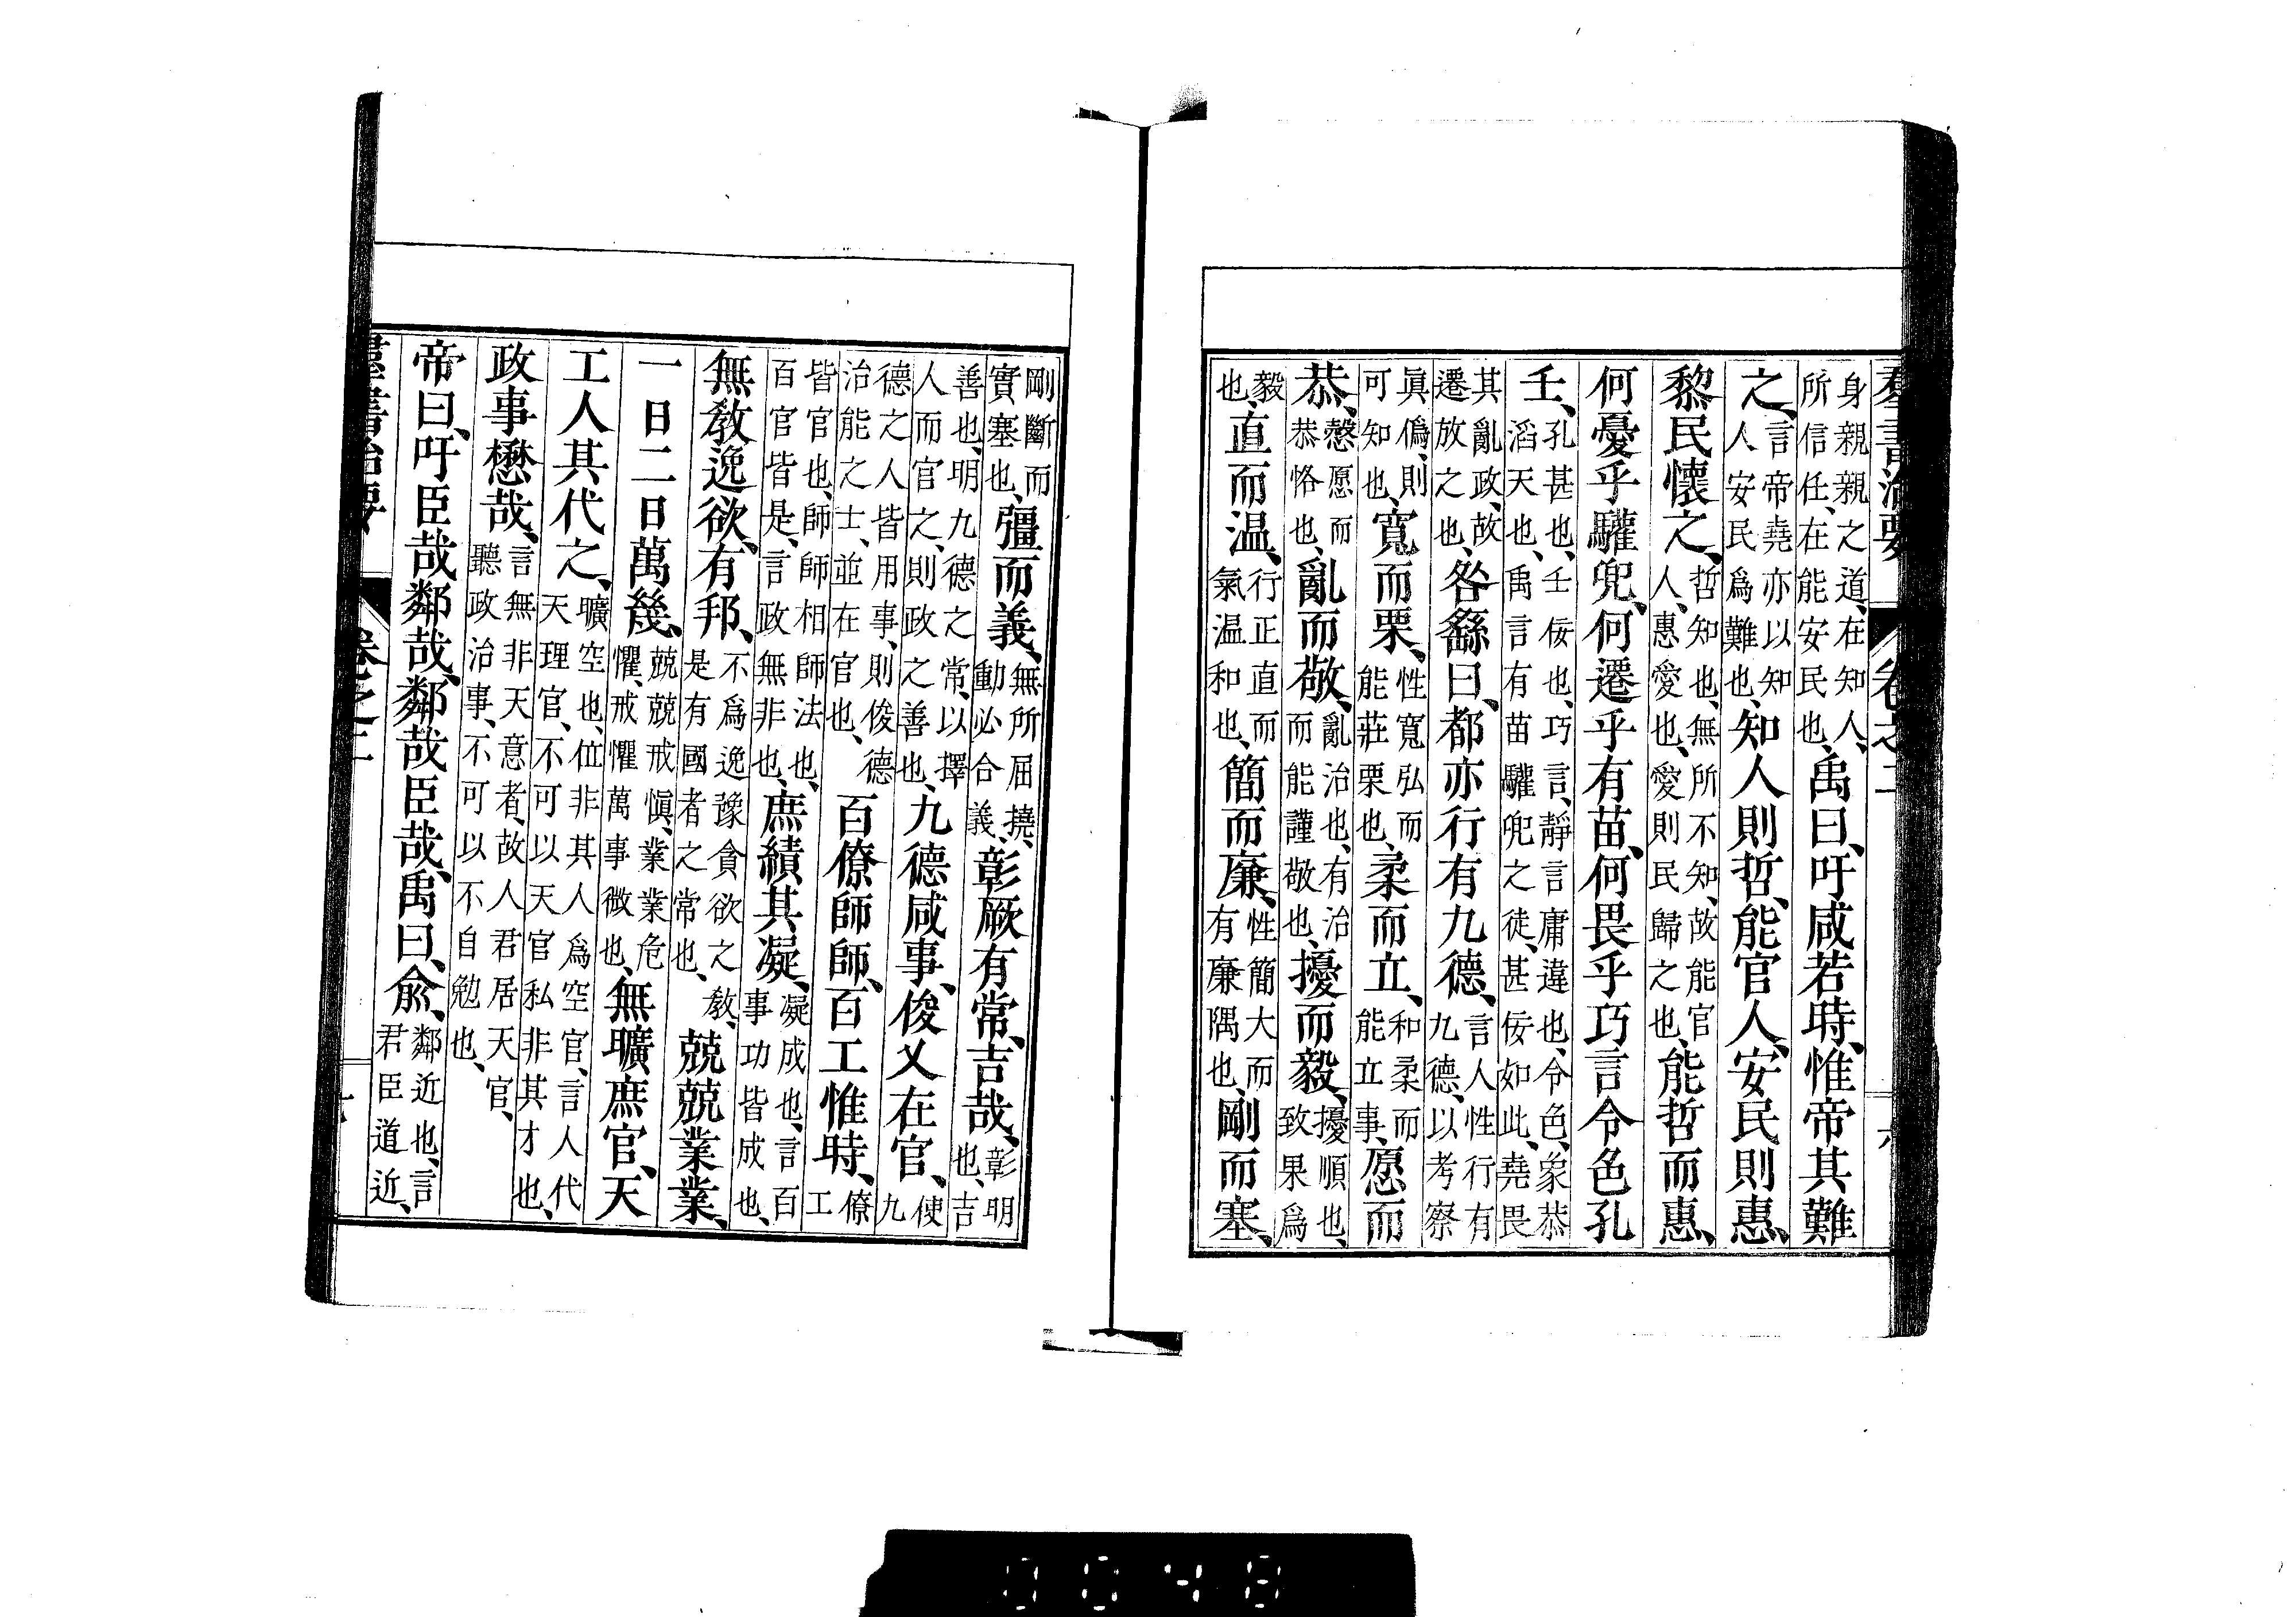 羣書治要 卷之二 六
身親親之道、在知人、所信任、在能安民也、禹曰、吁咸若時、惟帝其難
之、言帝堯亦以知人安民爲難也、知人則哲、能官人、安民則惠、
黎民懷之、哲知也、無所不知、故能官人、惠愛也、愛則民歸之也、能哲而惠、
何憂乎驩兜、何遷乎有苗、何畏乎巧言令色孔
壬、孔甚也、壬佞也、巧言、靜言庸違也、令色、象恭滔天也、禹言有苗驩兜之徒、甚佞如此、堯畏
其亂政、故遷放之也、咎繇曰、都亦行有九德、言人性行有九德、以考察
眞僞、則可知也、寬而栗、性寬弘而能莊栗也、柔而立、和柔而能立事、愿而
恭、愨愿而恭恪也、亂而敬、亂治也、有治而能謹敬也、擾而毅、擾順也、致果爲
毅也、直而温、行正直而氣温和也、簡而廉、性簡大而有廉隅也、剛而塞、
剛斷而實塞也、彊而義、無所屈撓、動必合義、彰厥有常、吉哉、彰明也、吉
善也、明九德之常、以擇人而官之、則政之善也、九德咸事、俊乂在官、使九
德之人皆用事、則俊德治能之士、並在官也、百僚師師、百工惟時、僚工
皆官也、師師相師法也、百官皆是、言政無非也、庶績其凝、凝成也、言百事功皆成也、
無敎逸欲、有邦、不爲逸豫貪欲之敎、是有國者之常也、兢兢業業、
一日二日萬幾、兢兢戒愼、業業危懼、戒懼萬事微也、無曠庶官、天
工人其代之、曠空也、位非其人爲空官、言人代天理官、不可以天官私非其才也、
政事懋哉、言無非天意者、故人君居天官、聽政治事、不可以不自勉也、
帝曰、吁臣哉鄰哉、鄰哉臣哉、禹曰、兪、鄰近也、言君臣道近、
羣書治要 卷之二
0048